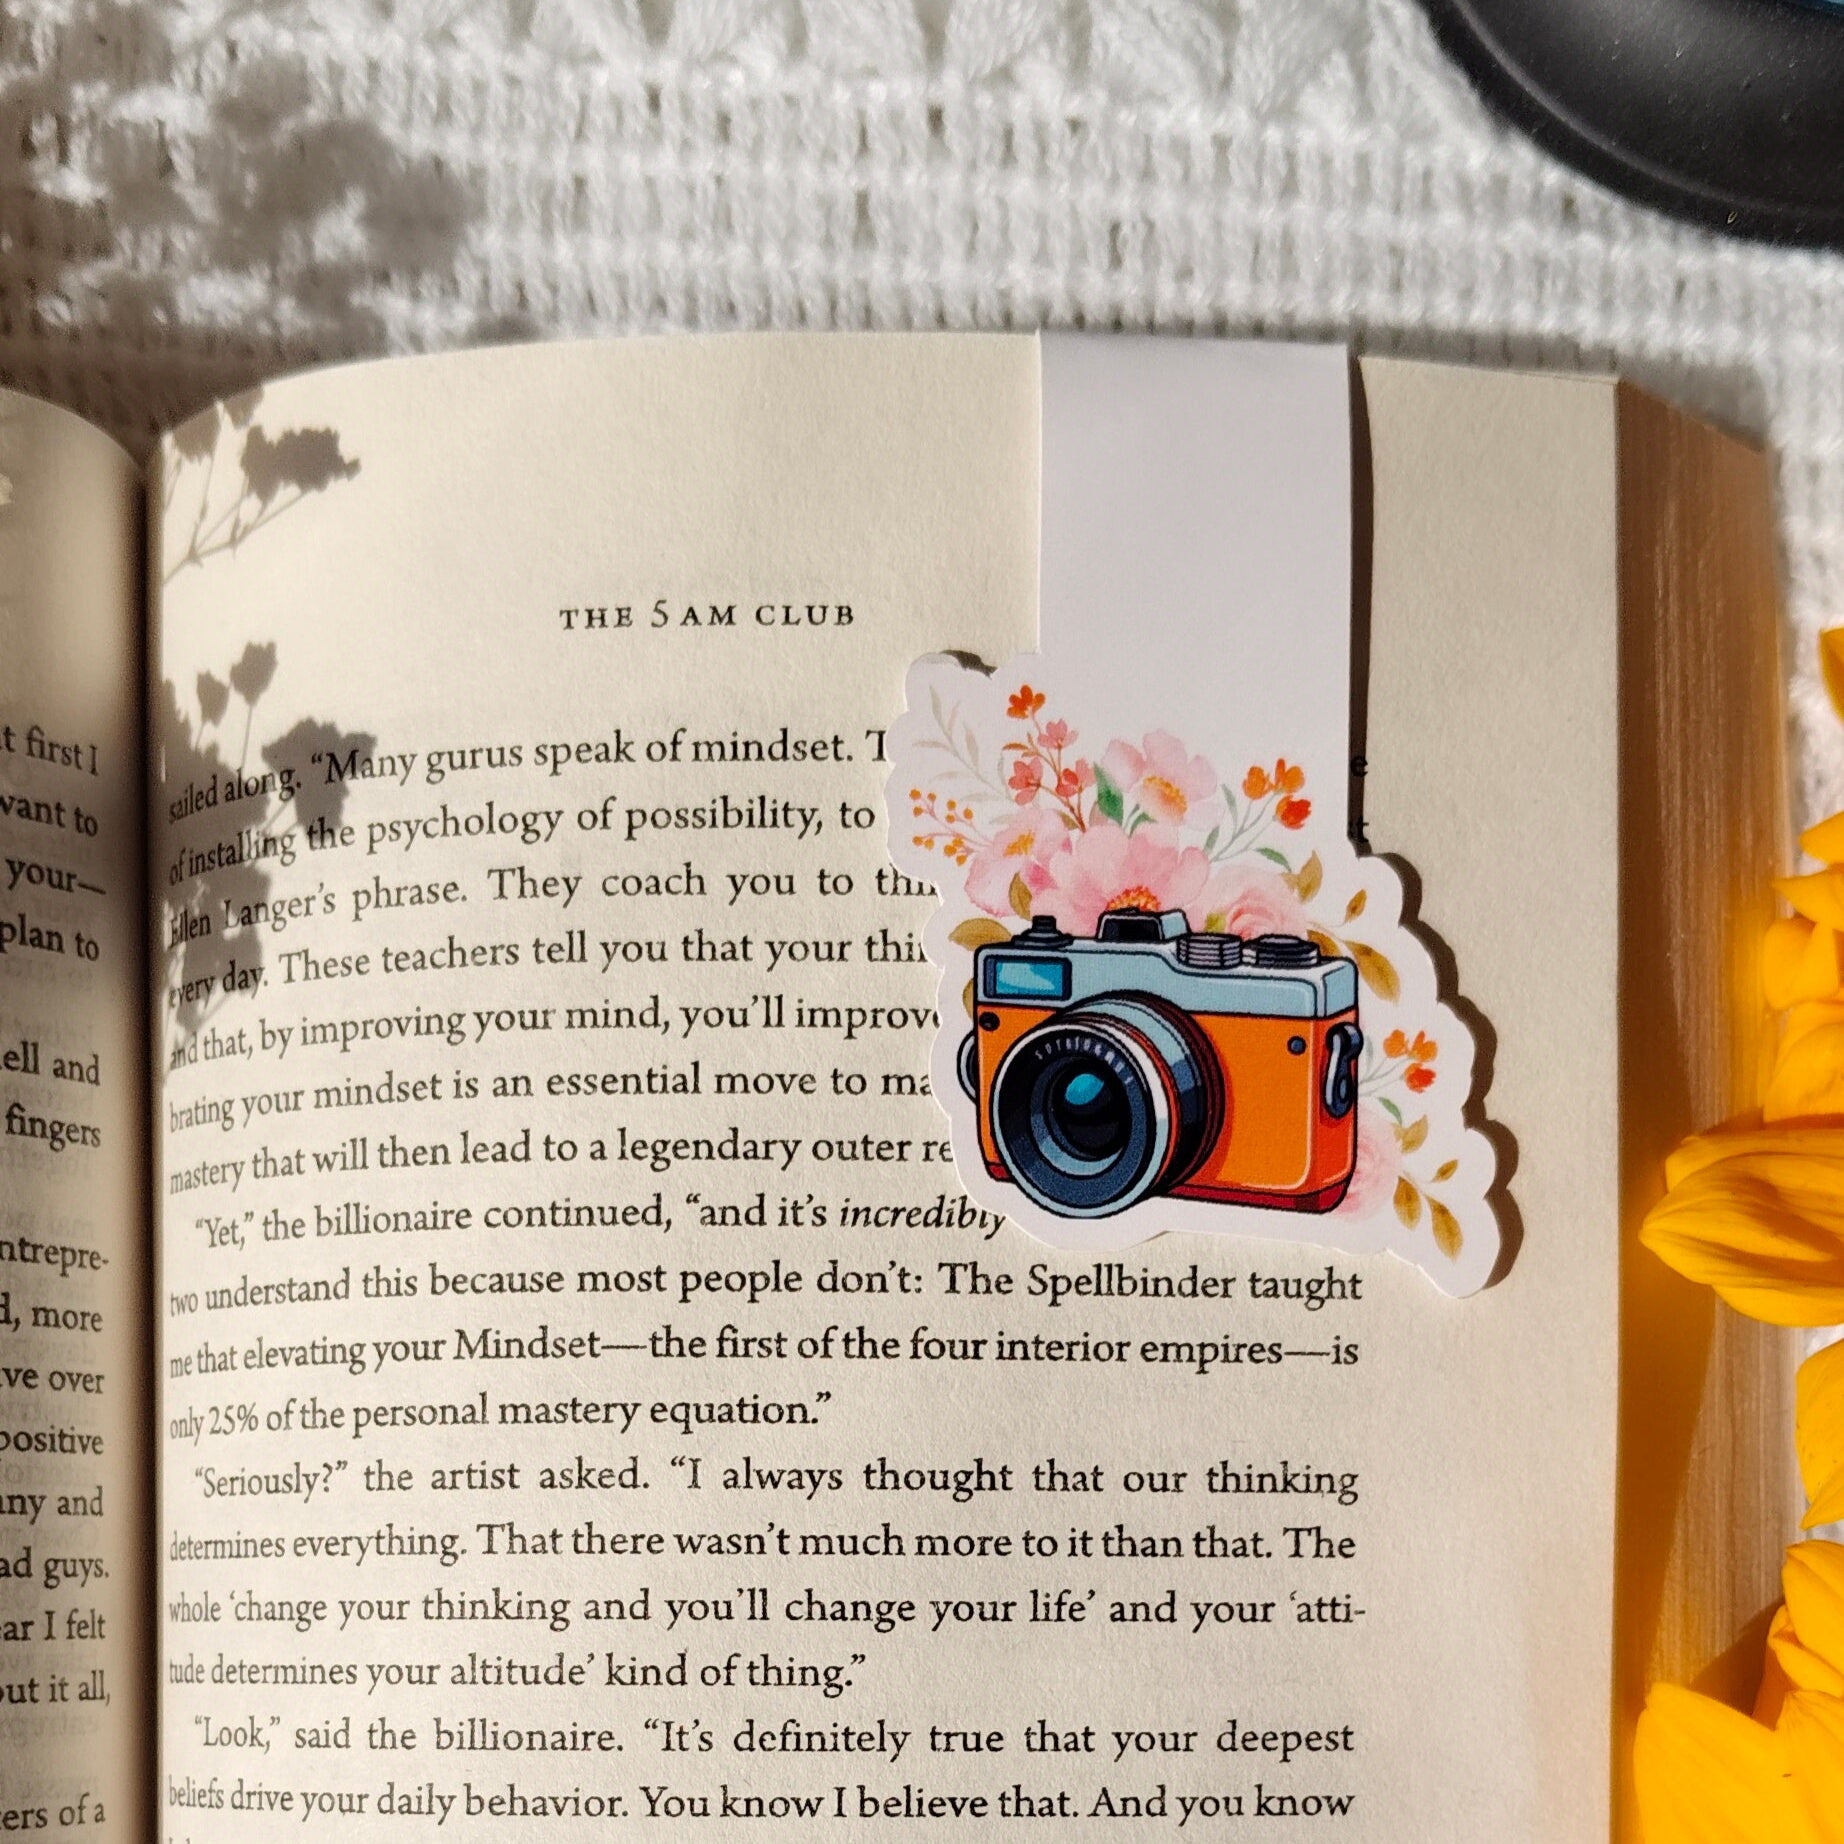 t first I
want to
your—
plan to
ell and
fingers
ntrepre-
d, more
ve over
positive
ny and
ad guys.
ar I felt
out it all,
ers of a
THE 5 AM CLUB
sailed along. “Many gurus speak of mindset. T
of installing the psychology of possibility, to
Ellen Langer’s phrase. They coach you to
every day. These teachers tell you that your
and that, by improving your mind, you’ll improve
brating your mindset is an essential move to
mastery that will then lead to a legendary outer re
“Yet,” the billionaire continued, “and it’s incredibly
two understand this because most people don’t: The Spellbinder taught
me that elevating your Mindset—the first of the four interior empires—is
only 25% of the personal mastery equation.”
“Seriously?” the artist asked. “I always thought that our thinking
determines everything. That there wasn’t much more to it than that. The
whole ‘change your thinking and you’ll change your life’ and your ‘atti-
tude determines your altitude’ kind of thing.”
“Look,” said the billionaire. “It’s definitely true that your deepest
beliefs drive your daily behavior. You know I believe that. And you know